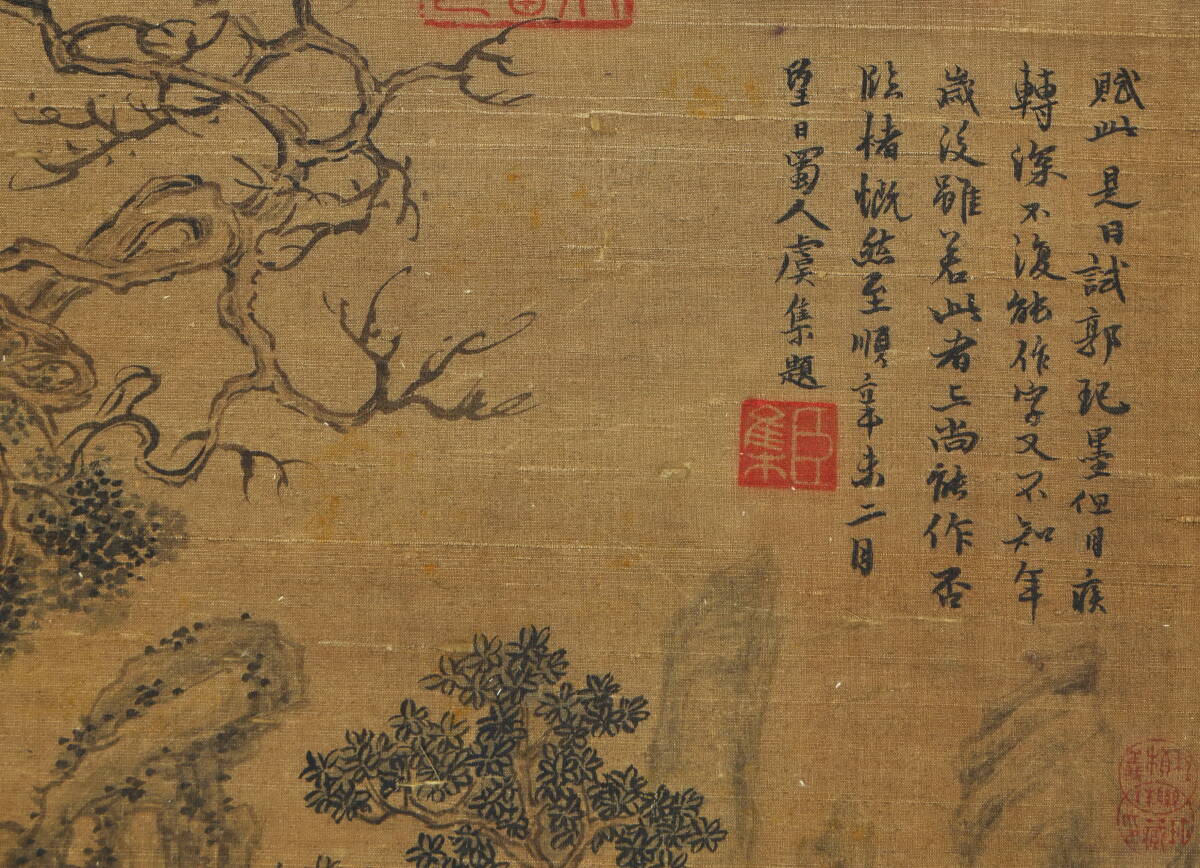 賦此是日試郭玘墨但目疾
轉深不復能作字又不知年
歲後雖若此者上尚能作否
臨楮慨然至順辛未二月
望日蜀人虞集題
臣集